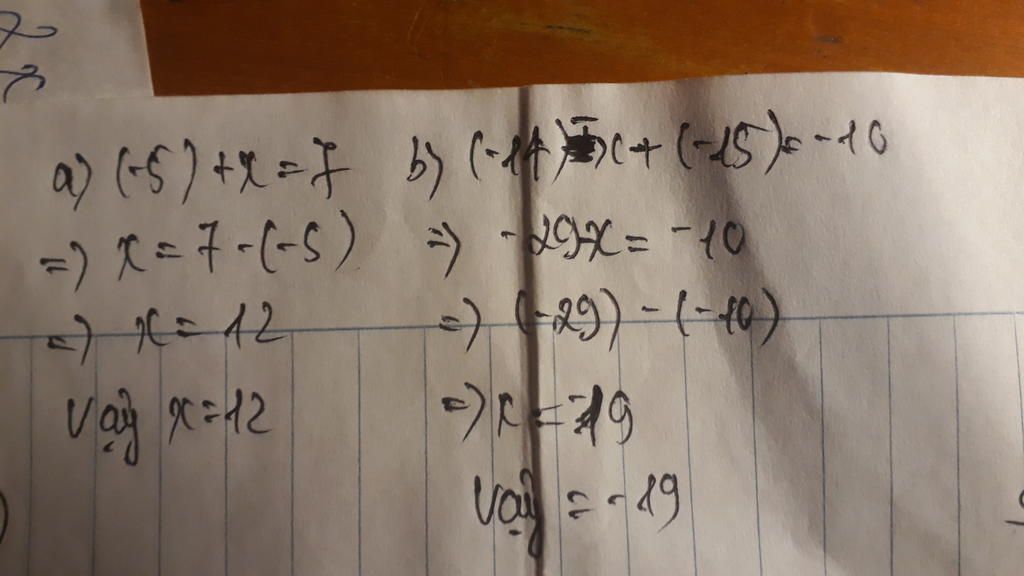 a) (-5) + x = 7
=) x = 7 - (-5)
=) x = 12
Vậy x = 12
b) (-14) - x + (-15) = -10
=) -29 - x = -10
=) (-29) - (-10)
=) x = -19
Vậy = -19